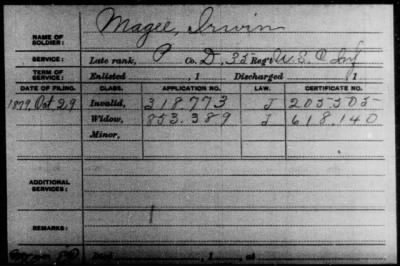 Magee, Irwin
NAME OF SOLDIER:
SERVICE: Late rank, P Co. D, 35 Reg't U.S.C. Inf
TERM OF SERVICE: Enlisted , 1 Discharged , 1
DATE OF FILING. CLASS. APPLICATION NO. LAW. CERTIFICATE NO.
1879, Oct 29 Invalid, 318.773 J 205505
Widow, 853.389 J 618.140
Minor,
ADDITIONAL SERVICES:
REMARKS:
, 1 , at